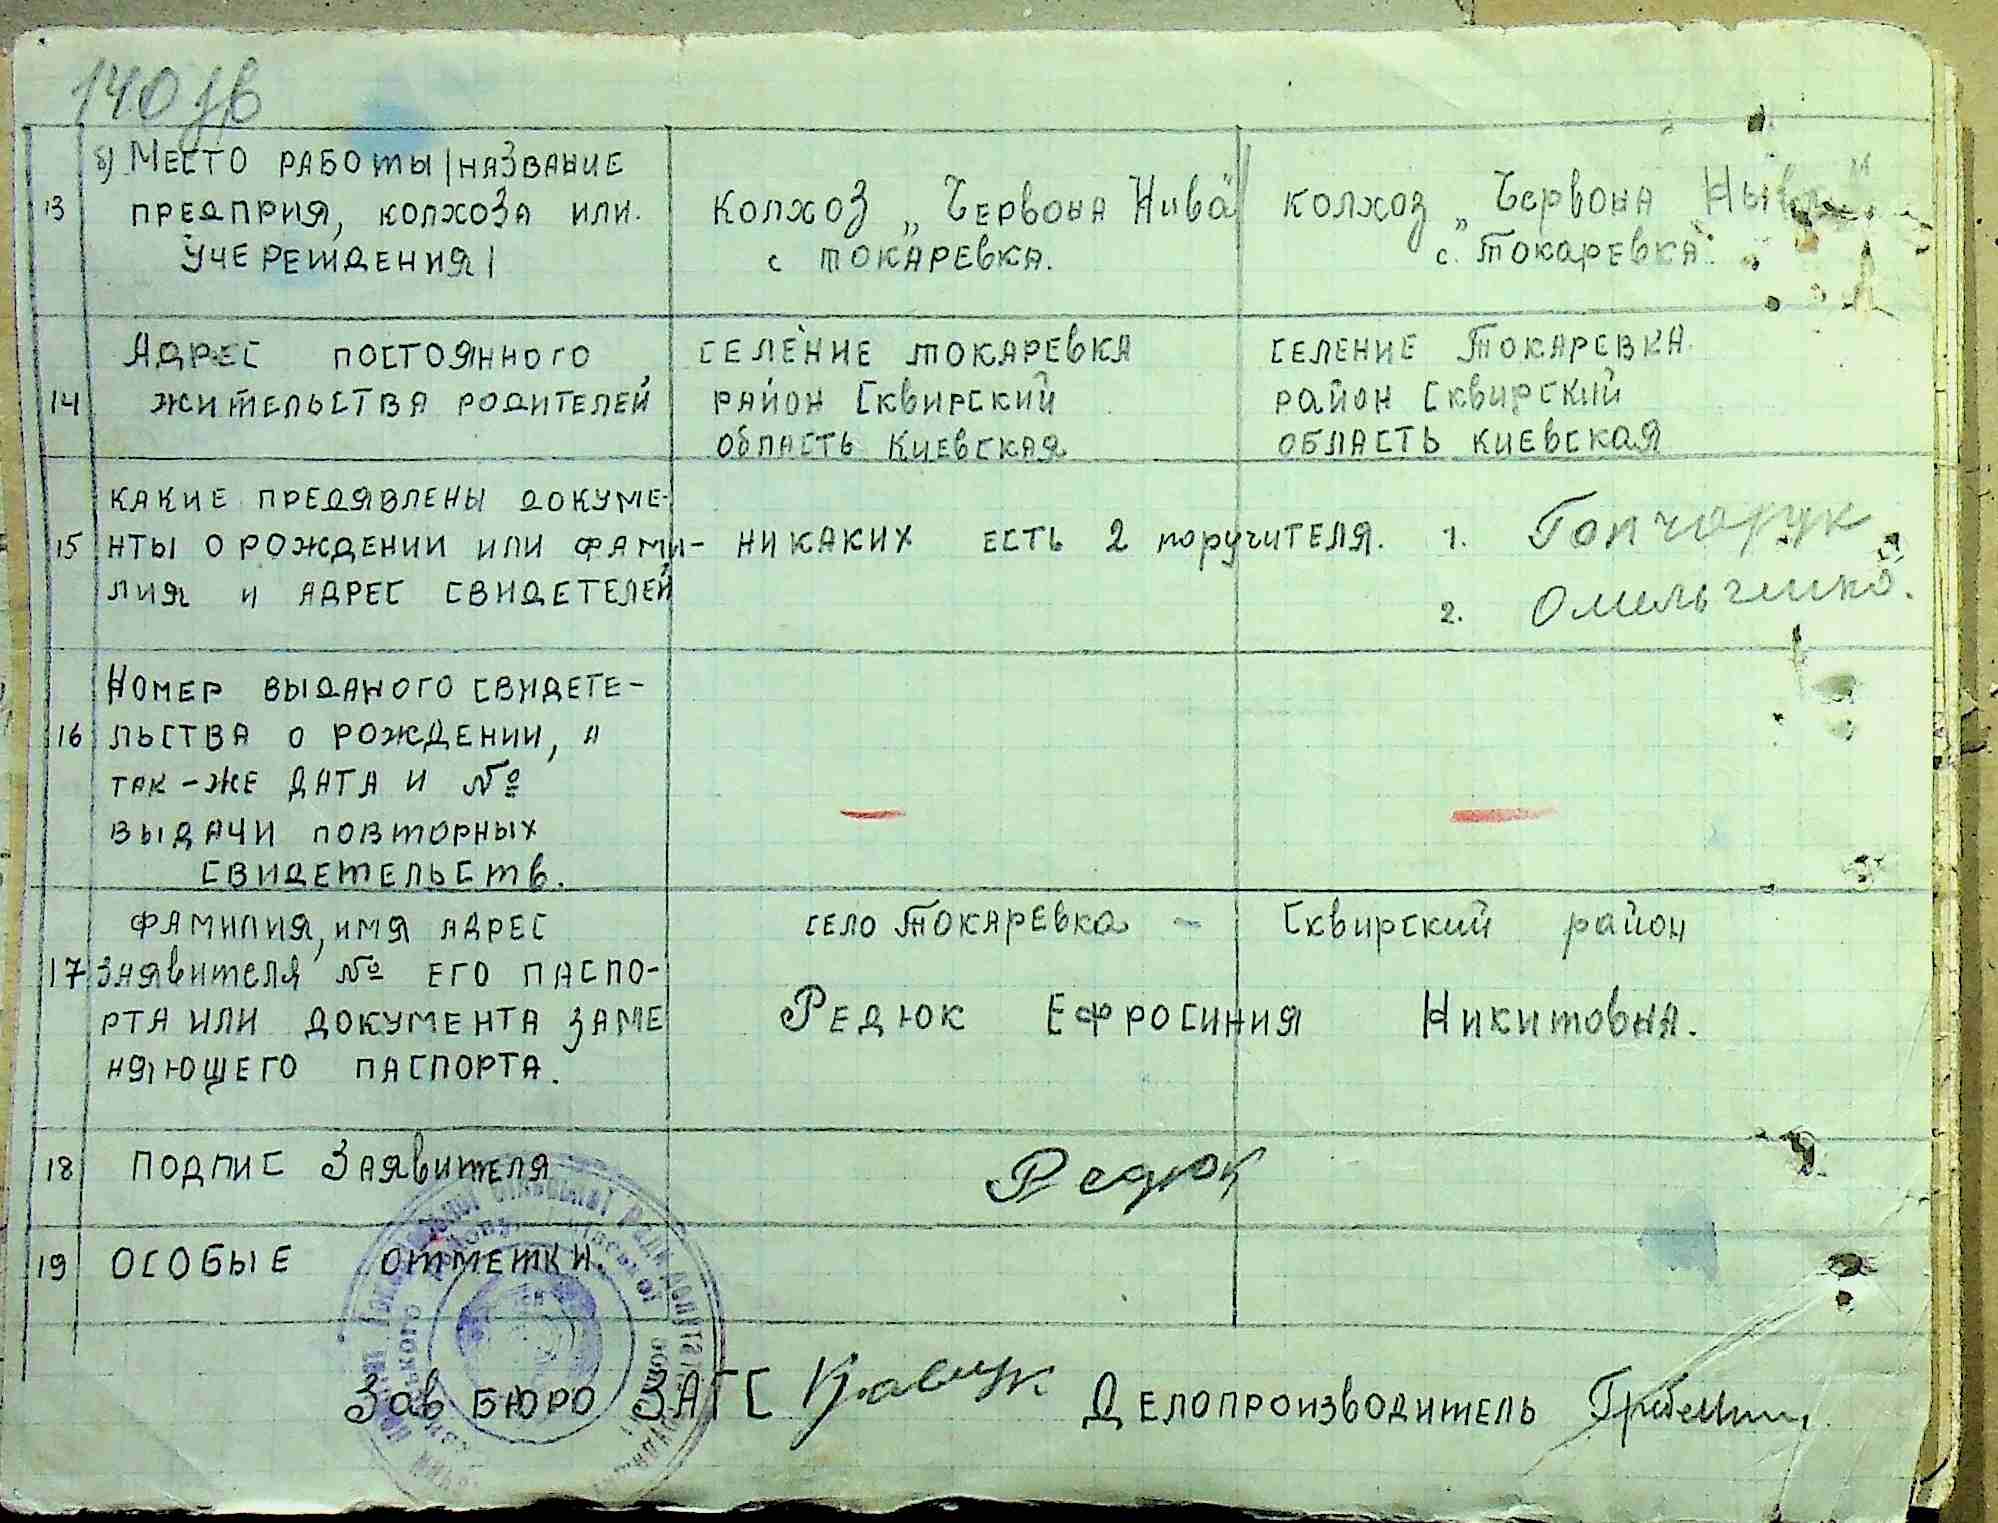 140 зв
13 б) Место работы /название колхоз „Червона Нива" колхоз „Червона Ныва"
предприя, колхоза или с токаревка. с. Токаревка.
учереждения/
14 Адрес постоянного селение токаревка селение Токаревка.
жительства родителей район Сквирский район Сквирский
область Киевская область киевская
15 какие предявлены докуме-
нты о рождении или фами- никаких есть 2 поручителя. 1. Гончарук
лия и адрес свидетелей 2. Омельченко.
16 Номер выданого свидете-
льства о рождении, а
так-же дата и №
выдачи повторных
свидетельств.
17 фамилия, имя адрес село Токаревка - Сквирский район
заявителя № его паспо-
рта или документа заме Редюк Ефросиния Никитовна.
няющего паспорта.
18 подпис Заявителя Редюк
19 особые отметки.
Зав бюро ЗАГС Кравчук Делопроизводитель